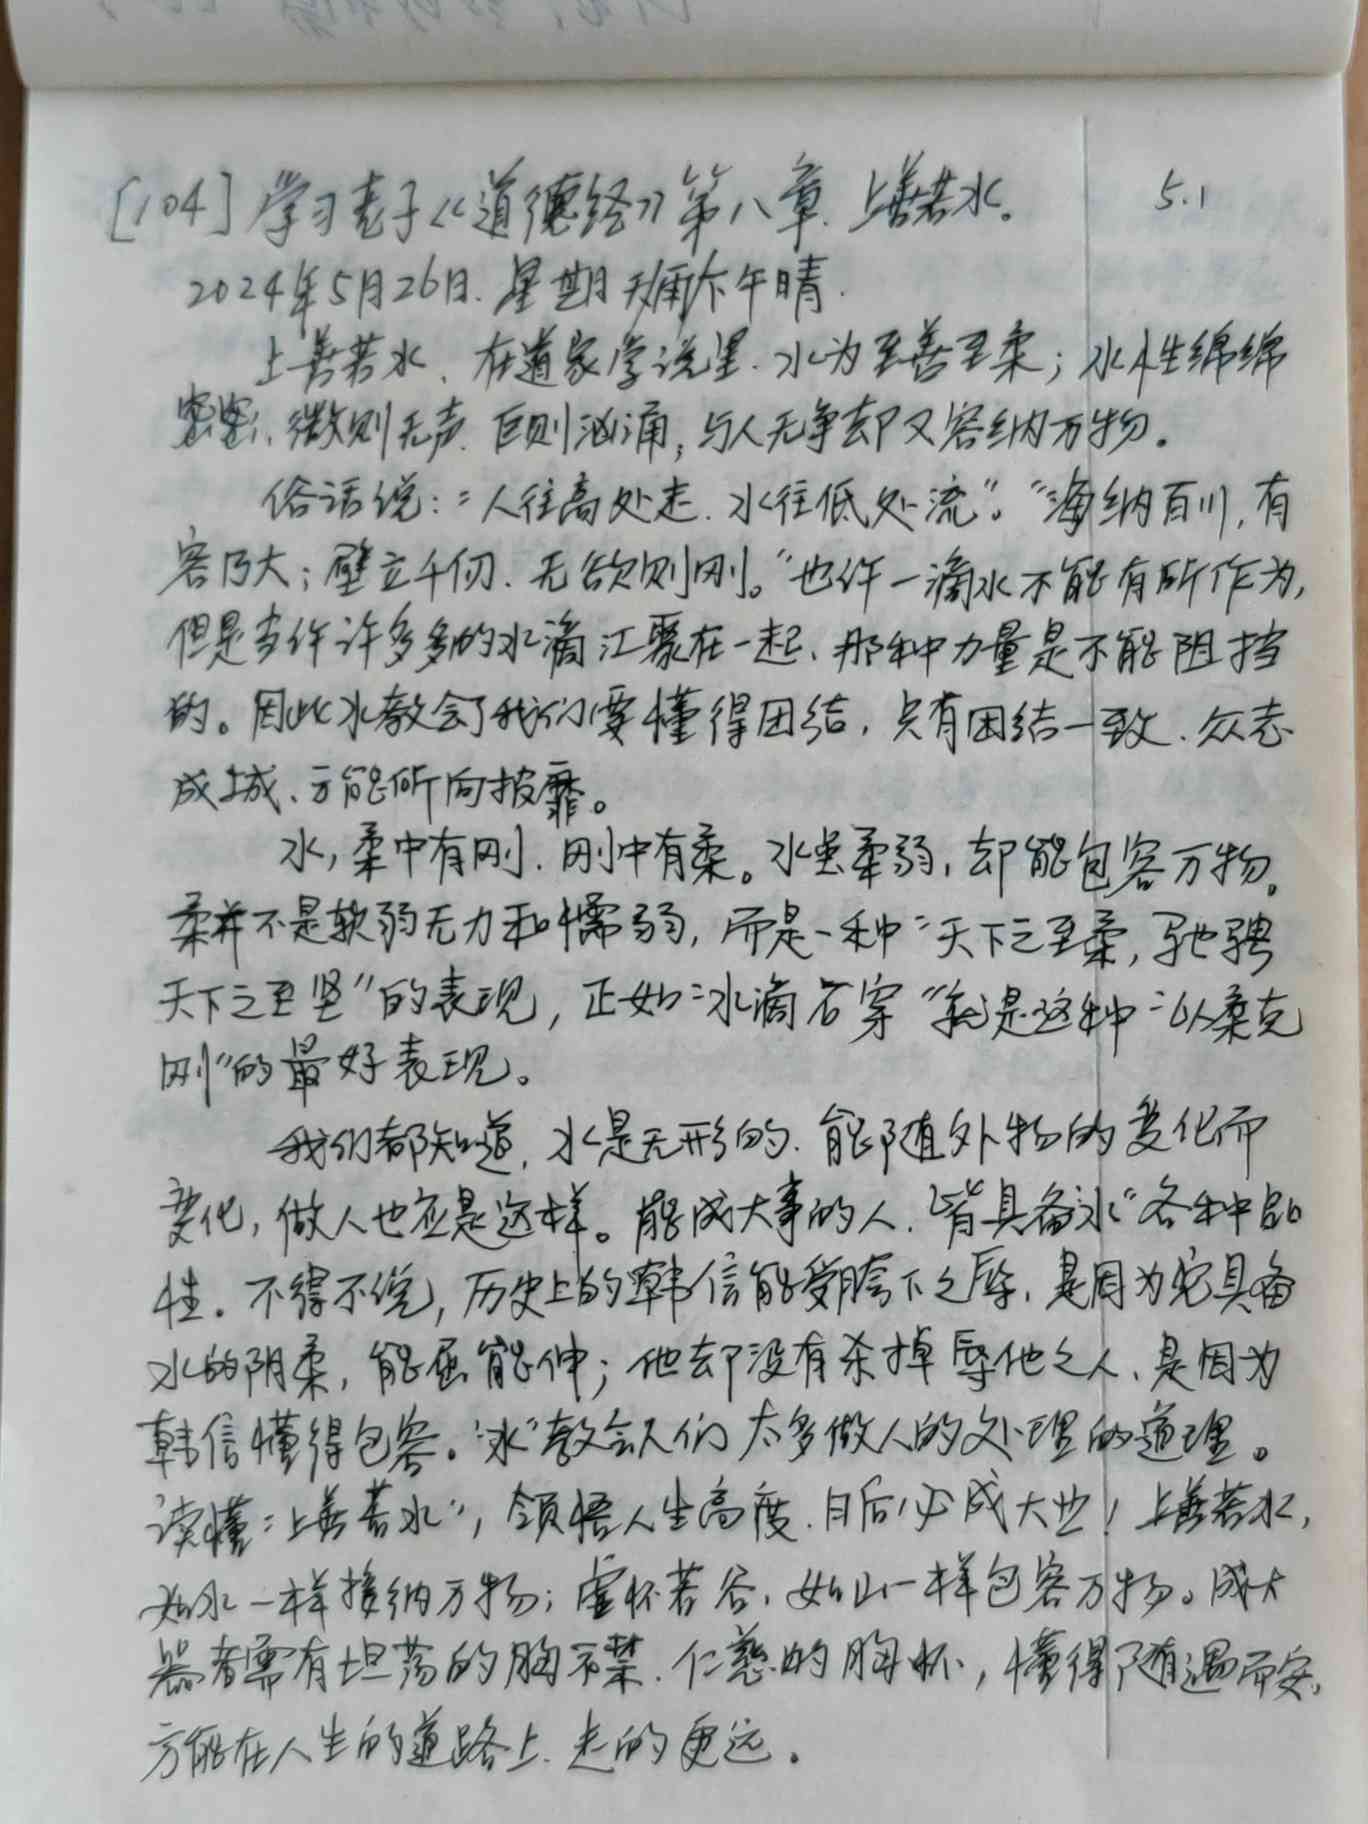 [104] 学习老子《道德经》第八章.上善若水。 5.1
2024年5月26日.星期天雨下午晴.
上善若水、在道家学说里.水为至善至柔；水性绵绵
密密、微则无声.巨则汹涌；与人无争却又容纳万物。
俗话说：“人往高处走.水往低处流”。“海纳百川,有
容乃大；壁立千仞.无欲则刚。”也许一滴水不能有所作为,
但是当许许多多的水滴汇聚在一起、那种力量是不能阻挡
的。因此水教会了我们要懂得团结,只有团结一致.众志
成城、方能所向披靡。
水,柔中有刚.刚中有柔。水虽柔弱,却能包容万物。
柔并不是软弱无力和懦弱,而是一种“天下之至柔,驰骋
天下之至坚”的表现,正如“水滴石穿”就是这种“以柔克
刚”的最好表现。
我们都知道,水是无形的.能随外物的变化而
变化,做人也应是这样。能成大事的人.皆具备“水”各种品
性.不得不说,历史上的韩信能受胯下之辱.是因为它具备
水的阴柔,能屈能伸；他却没有杀掉辱他之人、是因为
韩信懂得包容。“水”教会人们太多做人的处理的道理。
读懂“上善若水”,领悟人生高度.日后必成大业！上善若水,
如水一样接纳万物；虚怀若谷,如山一样包容万物。成大
器者需有坦荡的胸襟.仁慈的胸怀,懂得随遇而安,
方能在人生的道路上.走的更远。